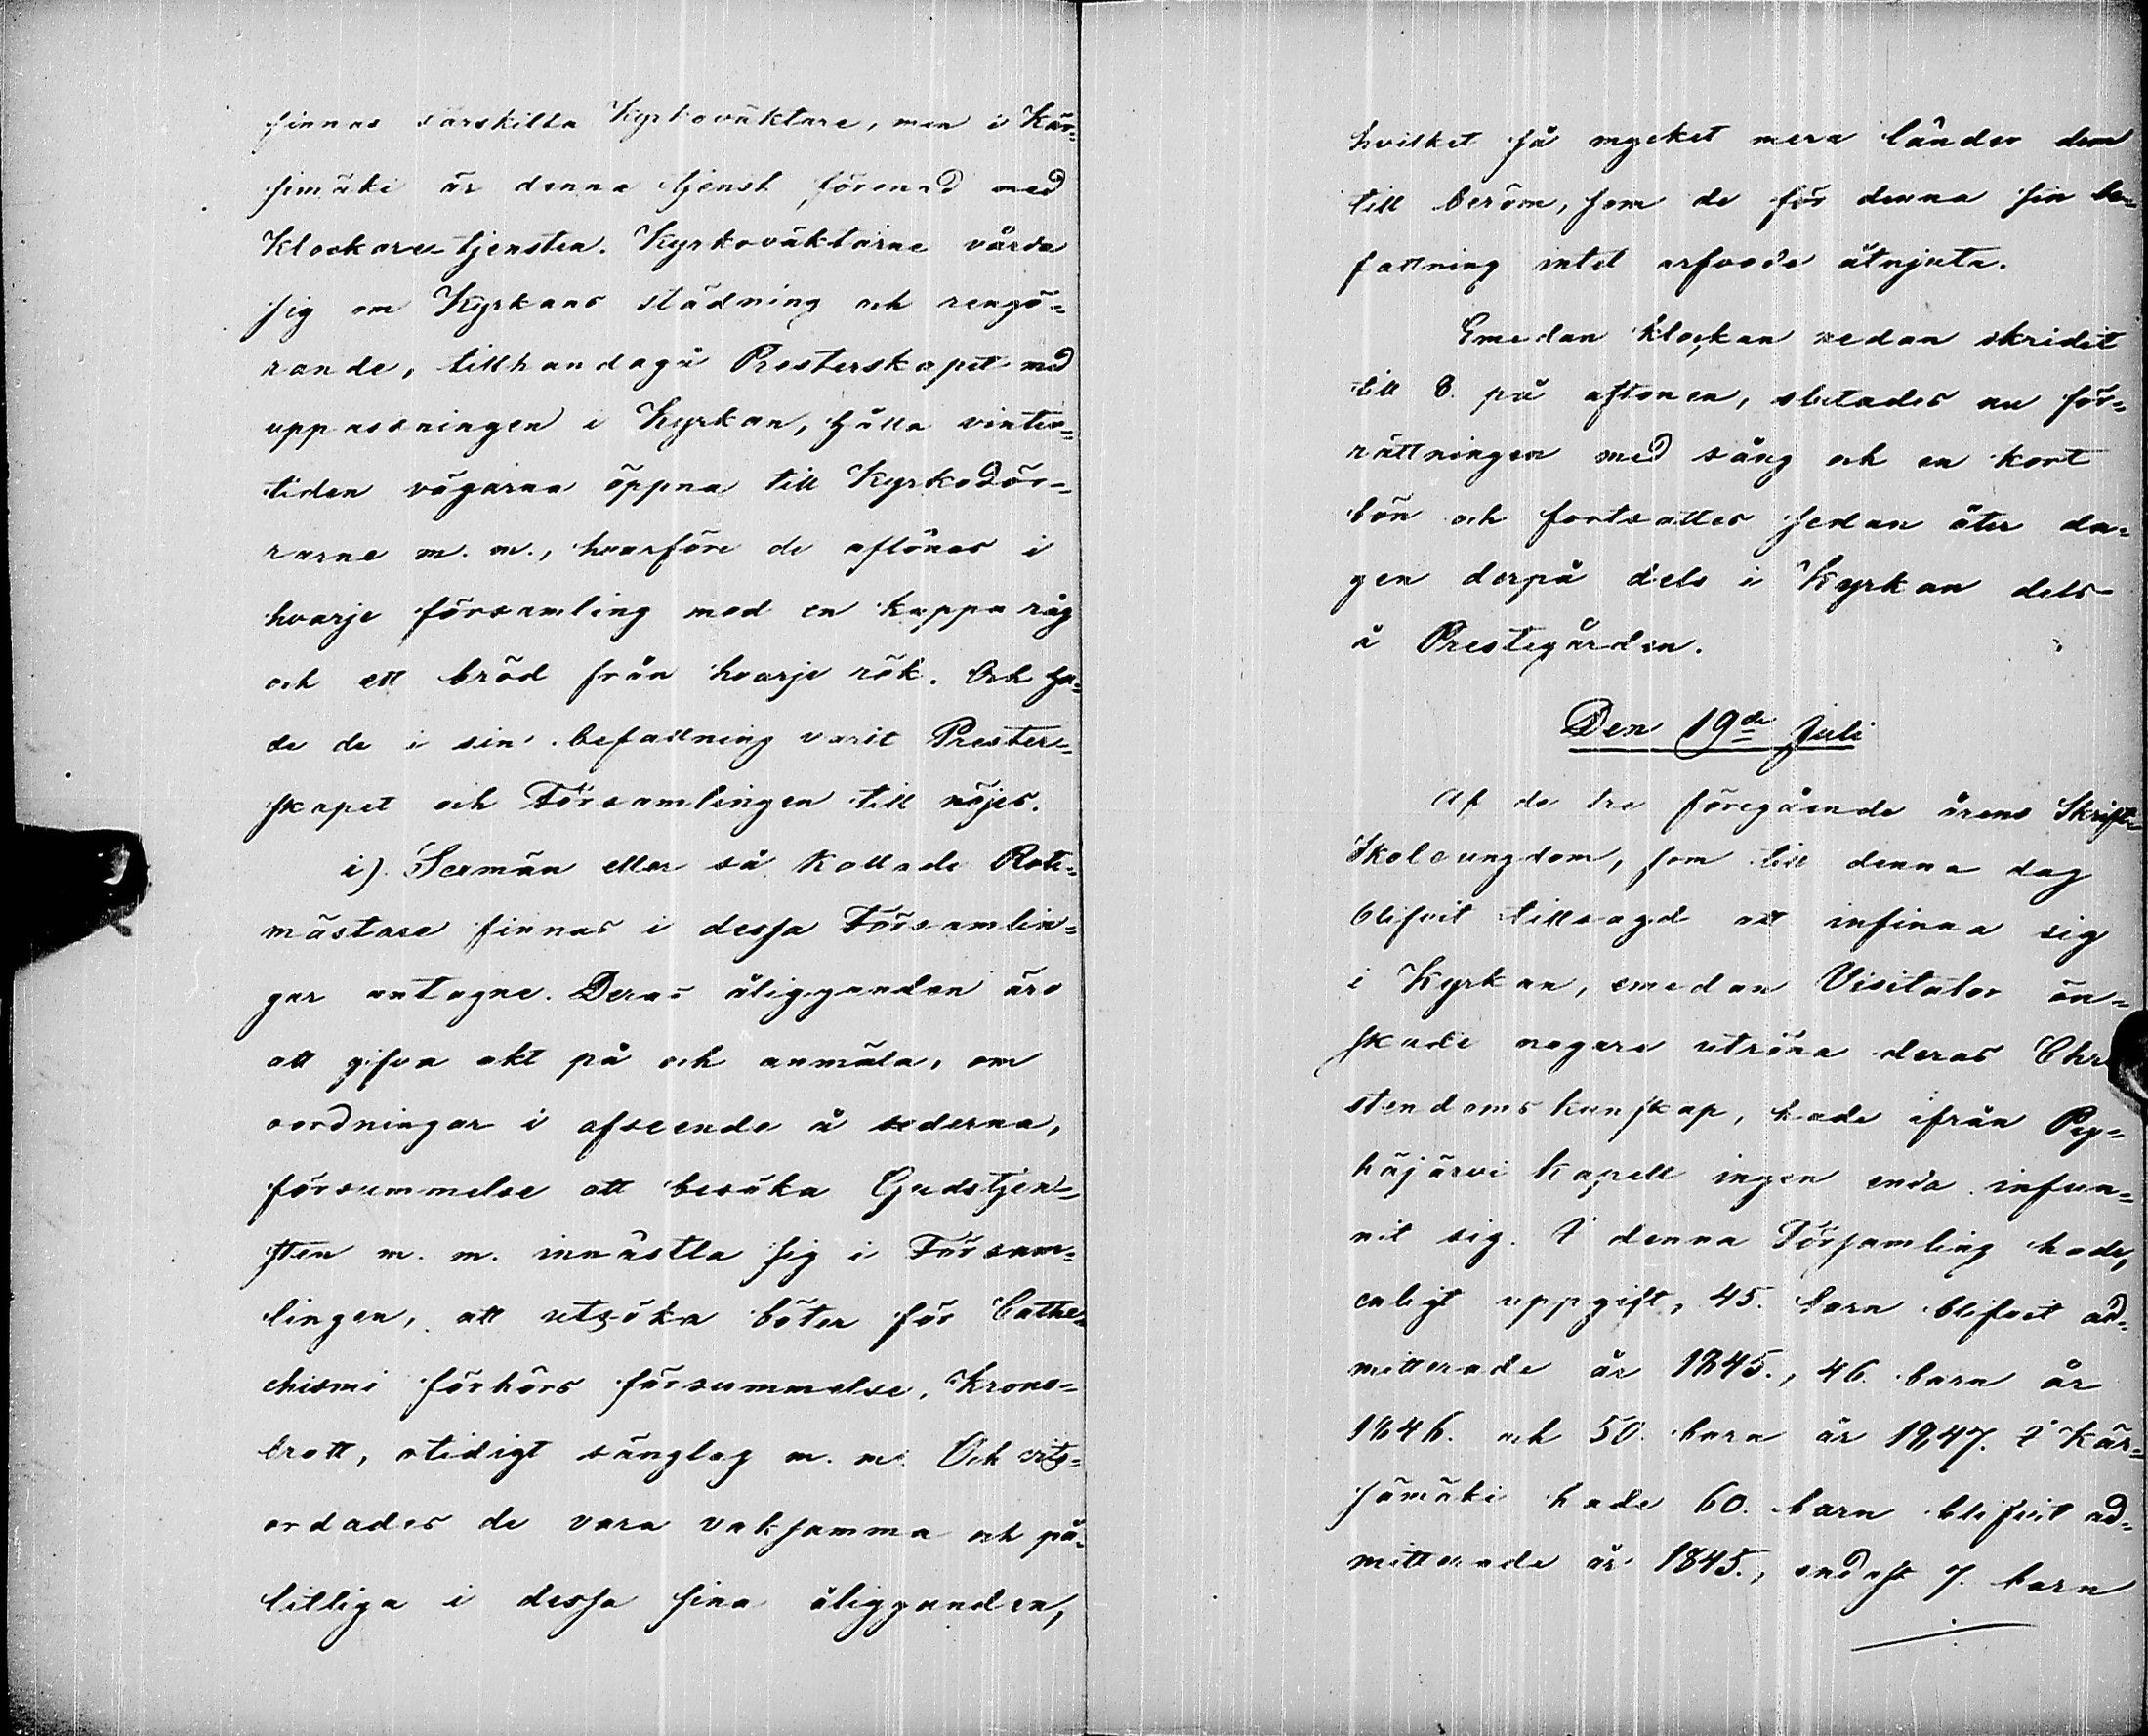 finnas särskilta Kyrkoväktare, men i Kär=
simäki är denna tjenst förenad med
Klockare-tjensten. Kyrkoväktarne vårda
sig om Kyrkans städning och rengö=
rande, tillhandagå Presterskapet med
uppassningen i Kyrkan, hålla vinter=
tiden vägarna öppna till Kyrkodör=
rarne m. m., hvarföre de aflönas i
hvarje församling med en kappa råg
och ett bröd från hvarje rök. Och ha=
de de i sin befattning varit Prester=
skapet och Församlingen till nöjes.
i). Sexmän eller så kallade Rote=
mästare finnas i dessa Församlin=
gar antagne. Deras åligganden äro
att gifva akt på och anmäla, om
oordningar i afseende å sederna,
försummelse att besöka Gudstjen=
sten m. m. innästla sig i Försam=
lingen, att utsöka böter för Cathe=
chismi förhörs försummelse, Krono=
brott, otidigt sänglag m. m. Och vits=
ordades de vara vaksamma och på=
litliga i dessa sina åligganden,
hvilket så mycket mera länder dem
till beröm, som de för denna sin be=
fattning intet arfvode åtnjuta.
Emedan klockan redan skridit
till 8. på aftonen, slutades nu för=
rättningen med sång och en kort
bön och fortsattes sedan åter da=
gen derpå dels i Kyrkan dels
å Prestegården.
Den 19de Juli
Af de tre föregående årens Skrift=
Skoleungdom, som till denna dag
blifvit tillsagd att infinna sig
i Kyrkan, emedan Visitator ön=
skade nogare utröna deras Chri
stendomskunskap, hade ifrån Py=
häjärvi Kapell ingen enda infun=
nit sig. I denna Församling hade,
enligt uppgift, 45. barn blifvit ad=
mitterade år 1845., 46. barn år
1846. och 50. barn år 1847. I Kär=
sämäki hade 60. barn blifvit ad=
mitterade år 1845., endast 7. barn